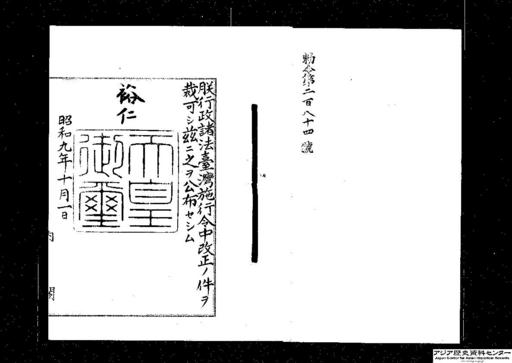 勅令第二百八十四號
朕行政諸法臺灣施行令中改正ノ件ヲ
裁可シ茲ニ之ヲ公布セシム
裕仁
天皇
御璽
昭和九年十月一日
内閣
アジア歴史資料センター
Japan Center for Asian Historical Records